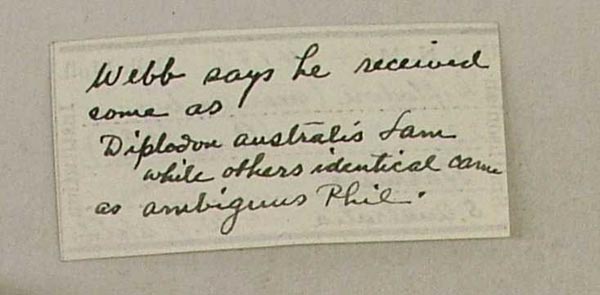 Webb says he received
some as
Diplodon australis Lam
while others identical came
as ambiguus Phil.